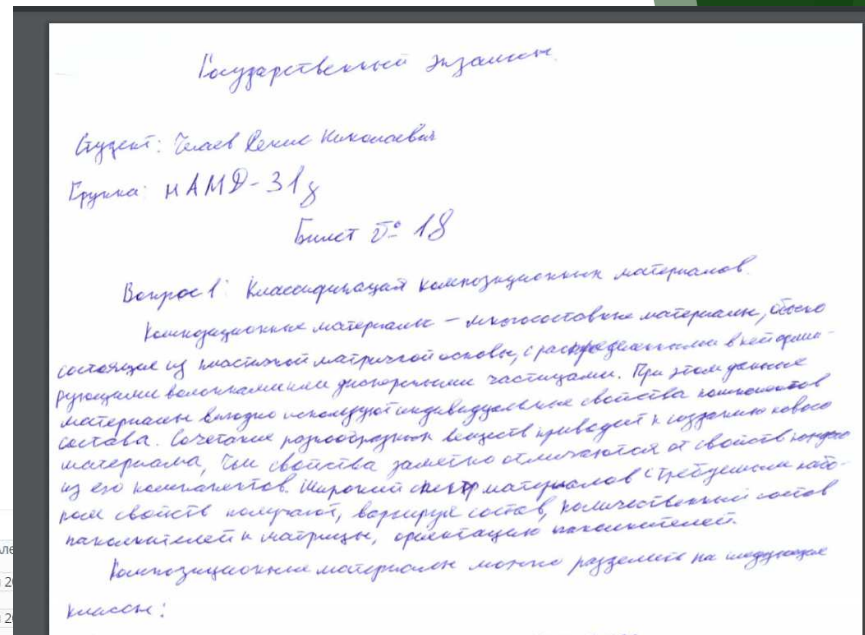 Государственный экзамен.
Студент: Денис Николаевич
Группа: НАМД-31д
Билет № 18
Вопрос 1: Классификация композиционных материалов.
Композиционные материалы – многосоставные материалы,
состоящие из пластичной матричной основы, с распределенными в ней арми-
рующими волокнами или дисперсными частицами. При этом данные
материалы выгодно используют индивидуальные свойства компонентов
состава. Сочетание разнообразных веществ приводит к созданию нового
материала, чьи свойства заметно отличаются от свойств каждого
из его компонентов. Широкий спектр материалов с требуемым набо-
ром свойств получают, варьируя состав, количественный состав
наполнителей и матрицы, ориентацию наполнителей.
Композиционные материалы можно разделить на следующие
классы: